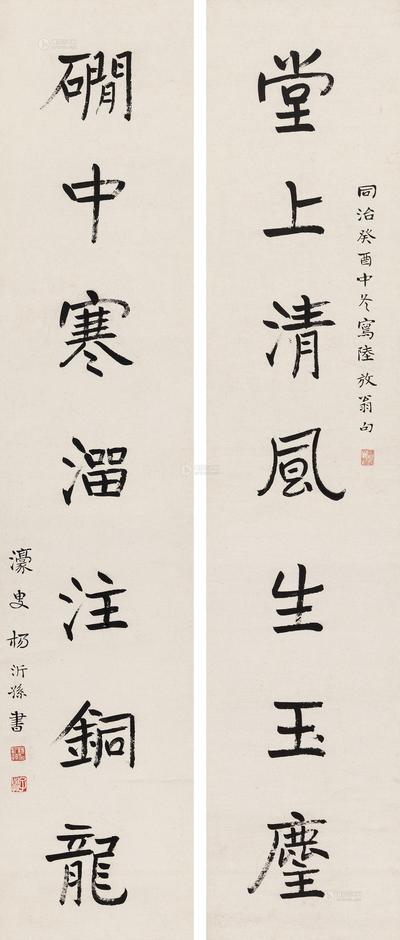 同治癸酉中冬寫陸放翁句
堂上清風生玉麈
磵中寒溜注銅龍
濠叟楊沂孫書